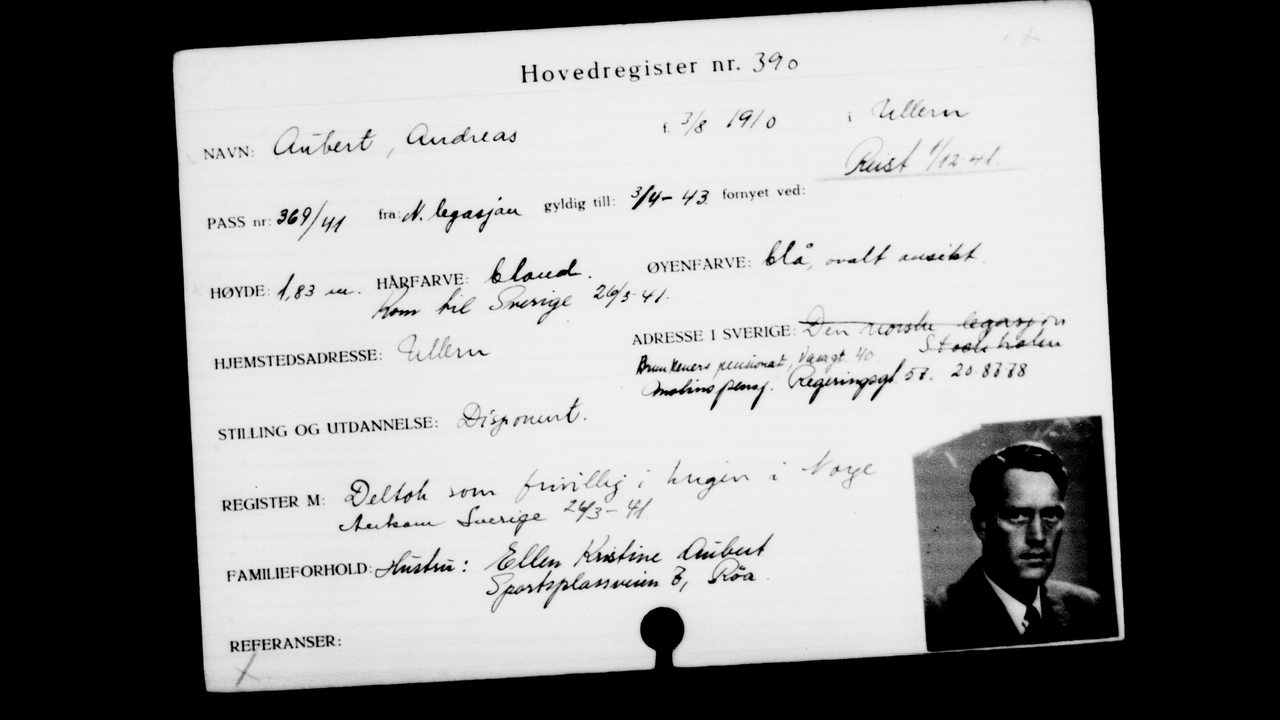 Hovedregister nr. 390
NAVN: Aubert, Andreas f. 3/8 1910 i Ullern
Reist 1/12-41.
PASS nr: 369/41 fra: N. legasjon gyldig till: 3/4-43 fornyet ved:
HØYDE: 1,83 m. HÅRFARVE: blond. ØYENFARVE: blå, ovalt ansikt.
Kom til Sverige 26/3-41.
HJEMSTEDSADRESSE: Ullern ADRESSE I SVERIGE: Den norske legasjon
Stockholm
Brunkeners pensionat, Vasagt 40
Molins pensj. Regeringsgt 57. 20 87 78
STILLING OG UTDANNELSE: Disponent.
REGISTER M: Deltok som frivillig i krigen i Norge
Ankom Sverige 26/3-41
FAMILIEFORHOLD: Hustru: Ellen Kristine Aubert
Sportsplassveien 7, Røa.
REFERANSER:
X